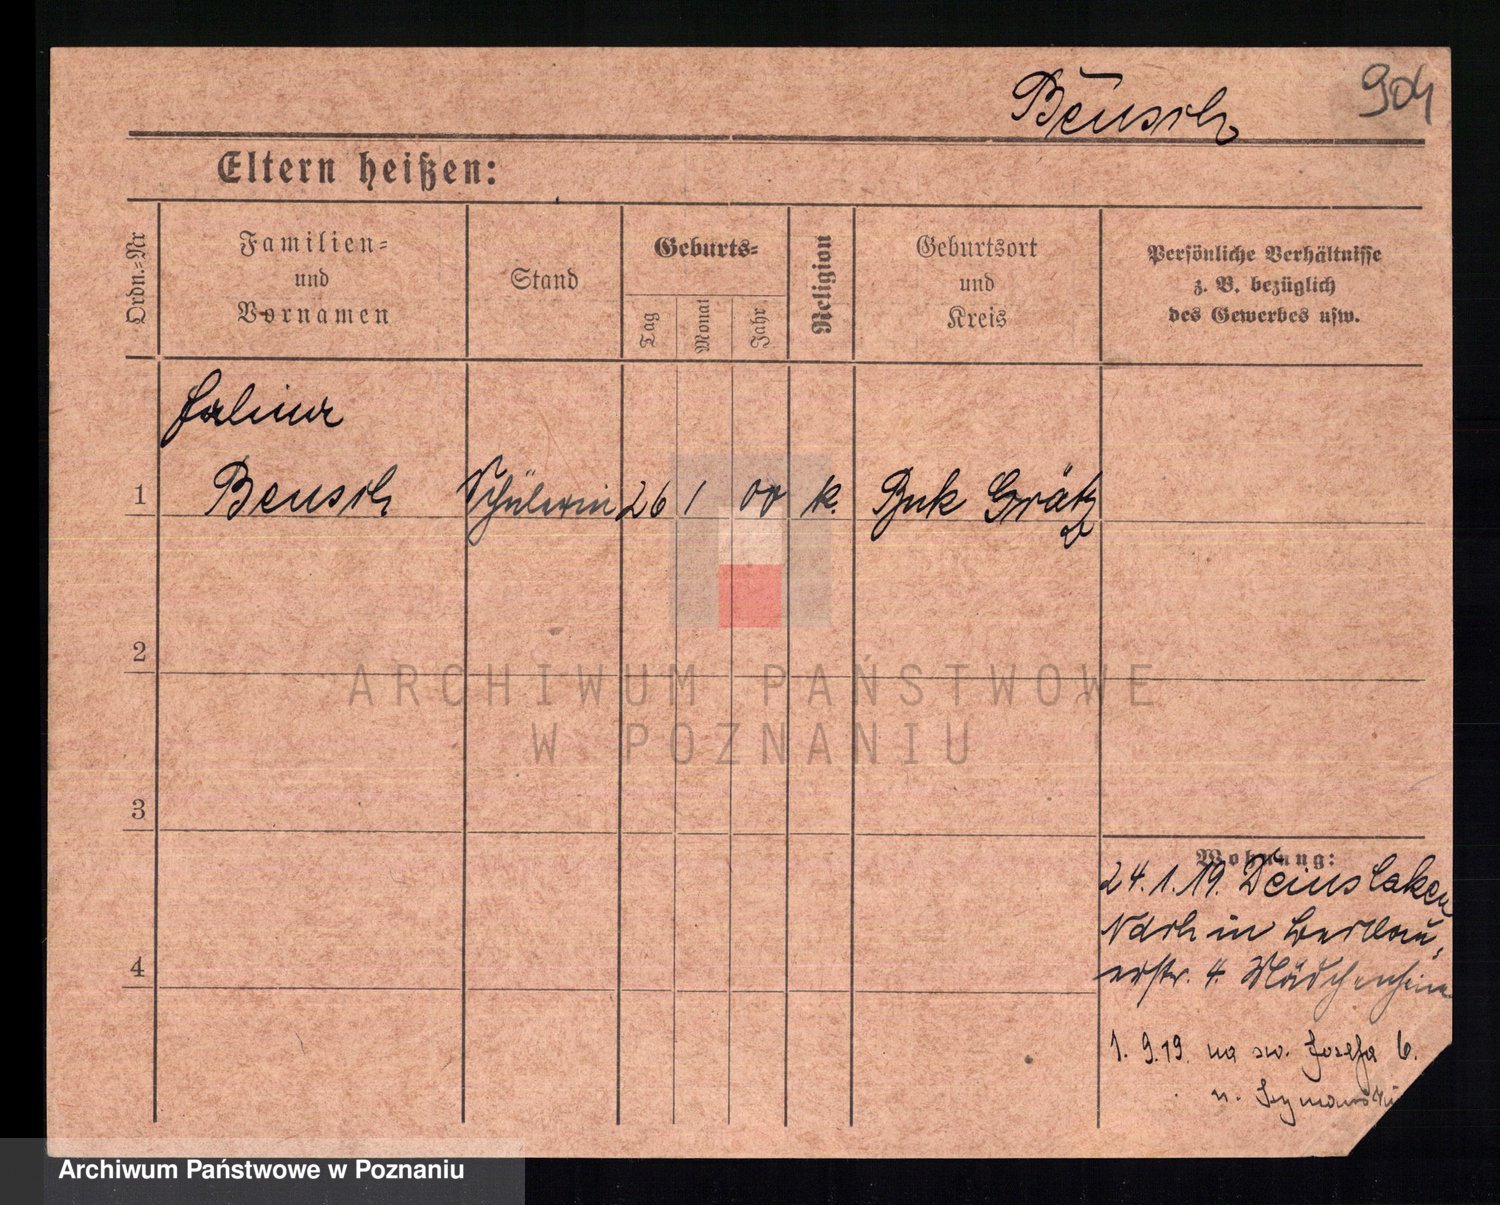 Beusch 904
Eltern heißen:
Ordn.=Nr
Familien=
und
Vornamen
Stand
Geburts=
Tag
Monat
Jahr
Religion
Geburtsort
und
Kreis
Persönliche Verhältnisse
z. B. bezüglich
des Gewerbes usw.
1 Beusch Schülerin 26 1 00 k. Buk Grätz
2
3
4
Wohnung:
24. 1. 19. Dinslaken
in
str. 4. Mädchenheim
1. 9. 19. na św. Józefa 6.
ARCHIWUM PAŃSTWOWE
W POZNANIU
Archiwum Państwowe w Poznaniu